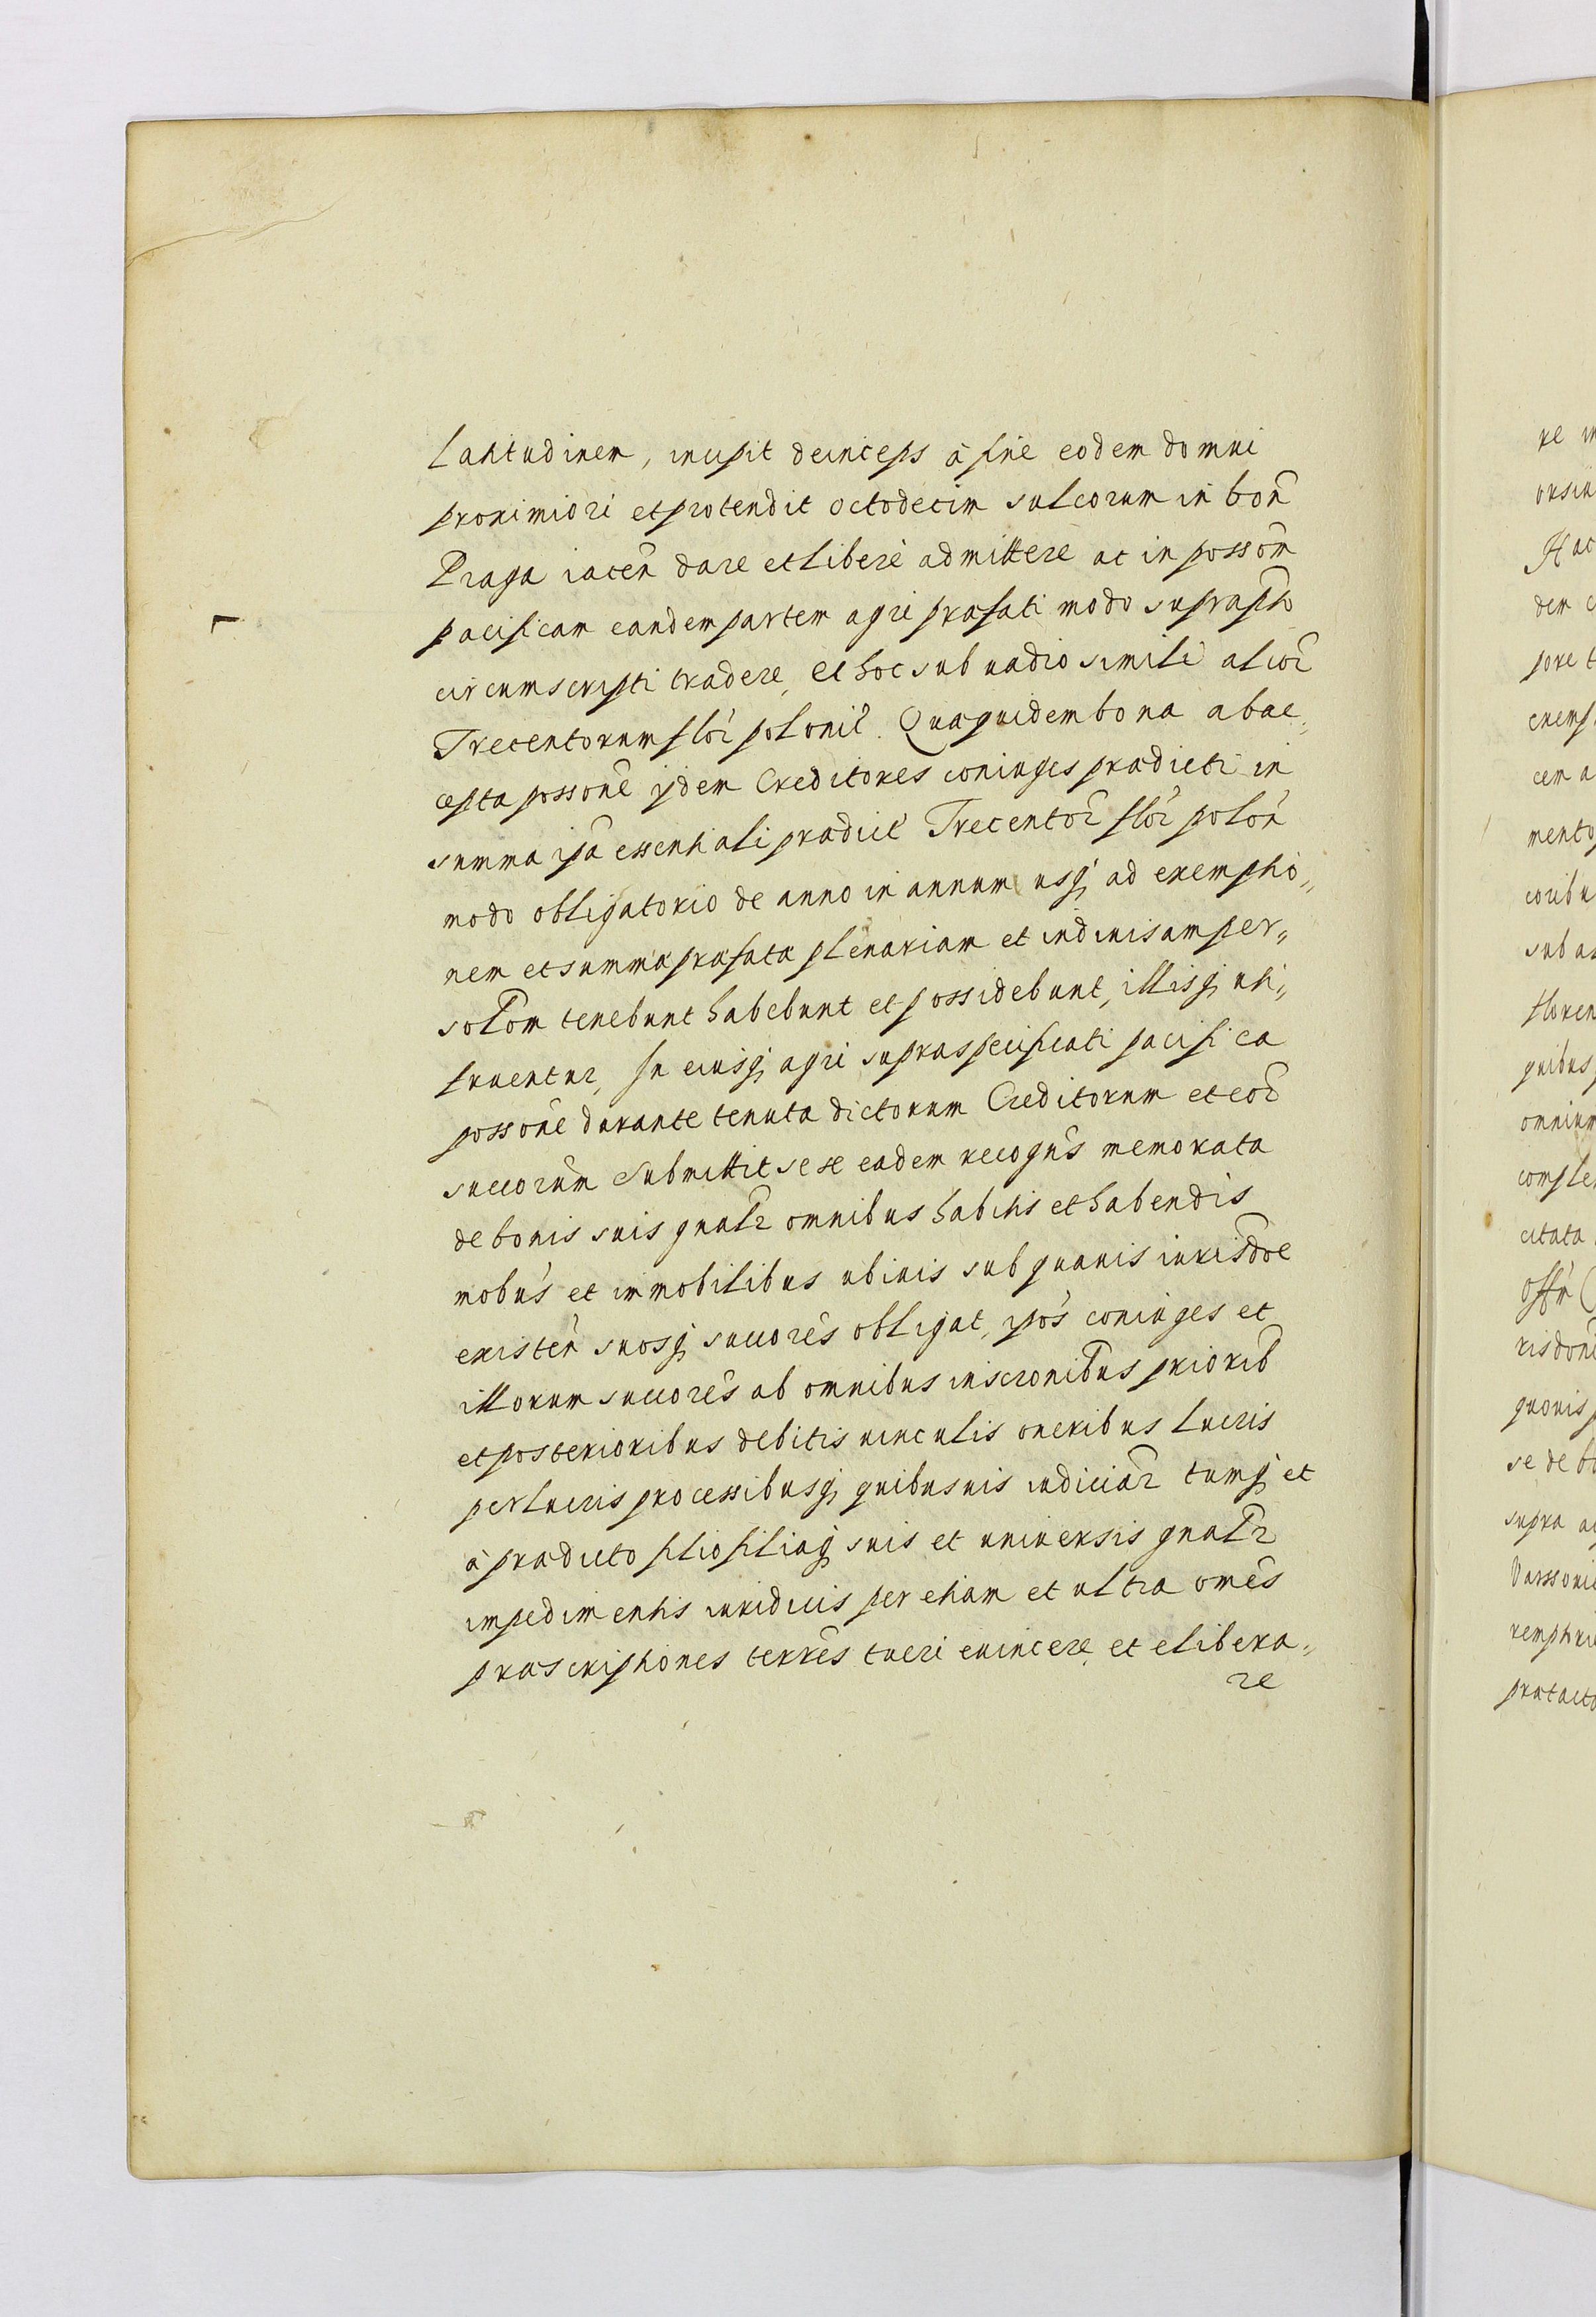 Latitudinem, incipit deinceps à fine eodem domui
proximiori et protendit octodecim sulcorum in bon̄
Praga iacen̄ dare et liberè admittere ac in posson̄
pacificam eandem partem agri præfati modo suprapto
circumscripti tradere, Et hoc sub vadio simili alior̄
Trecentorum flor̄ polonic̄. Quaquidem bona ab ac„
cepta possone ijdem Creditores coniuges prædicti in
summa ipā essentiali prædict̄ Trecentor̄ flor̄ polon̄
modo obligatorio de anno in annum usq; ad exemptio„
nem et summæ præfatæ plenariam et indiuisam per„
solōm tenebunt habebunt et possidebunt, illisq; uti„
fruentur, In cuiusq; agri supraspecificati pacifica
possone durante tenuta dictorum Creditorum et eor̄
succorum Submittit sese eadem recognōs memorata
de bonis suis gnalr̄ omnibus habitis et habendis
mobus et immobilibus ubiuis sub quauis iurisdōe
existen̄ suosq; succores obligat, ipōs coniuges et
illorum succores ab omnibus inscronibus priorib̄
et posterioribus debitis vinculis oneribus lucris
perlucris processibusq; quibusuis iudiciar̄ tumq; et
à prædicto filio filiaq; suis et uniuersis gnalr̄
impedimentis iuridicis per etiam et ultra omēs
præscriptiones terrēs tueri euincere et elibera„
re
re in
Hac
dem c
pore t
exemp
cem a
mento
coribu
sub as
floren
quibus
omnium
comple
citata
offm
risdoni
quouis
se de b
supra a